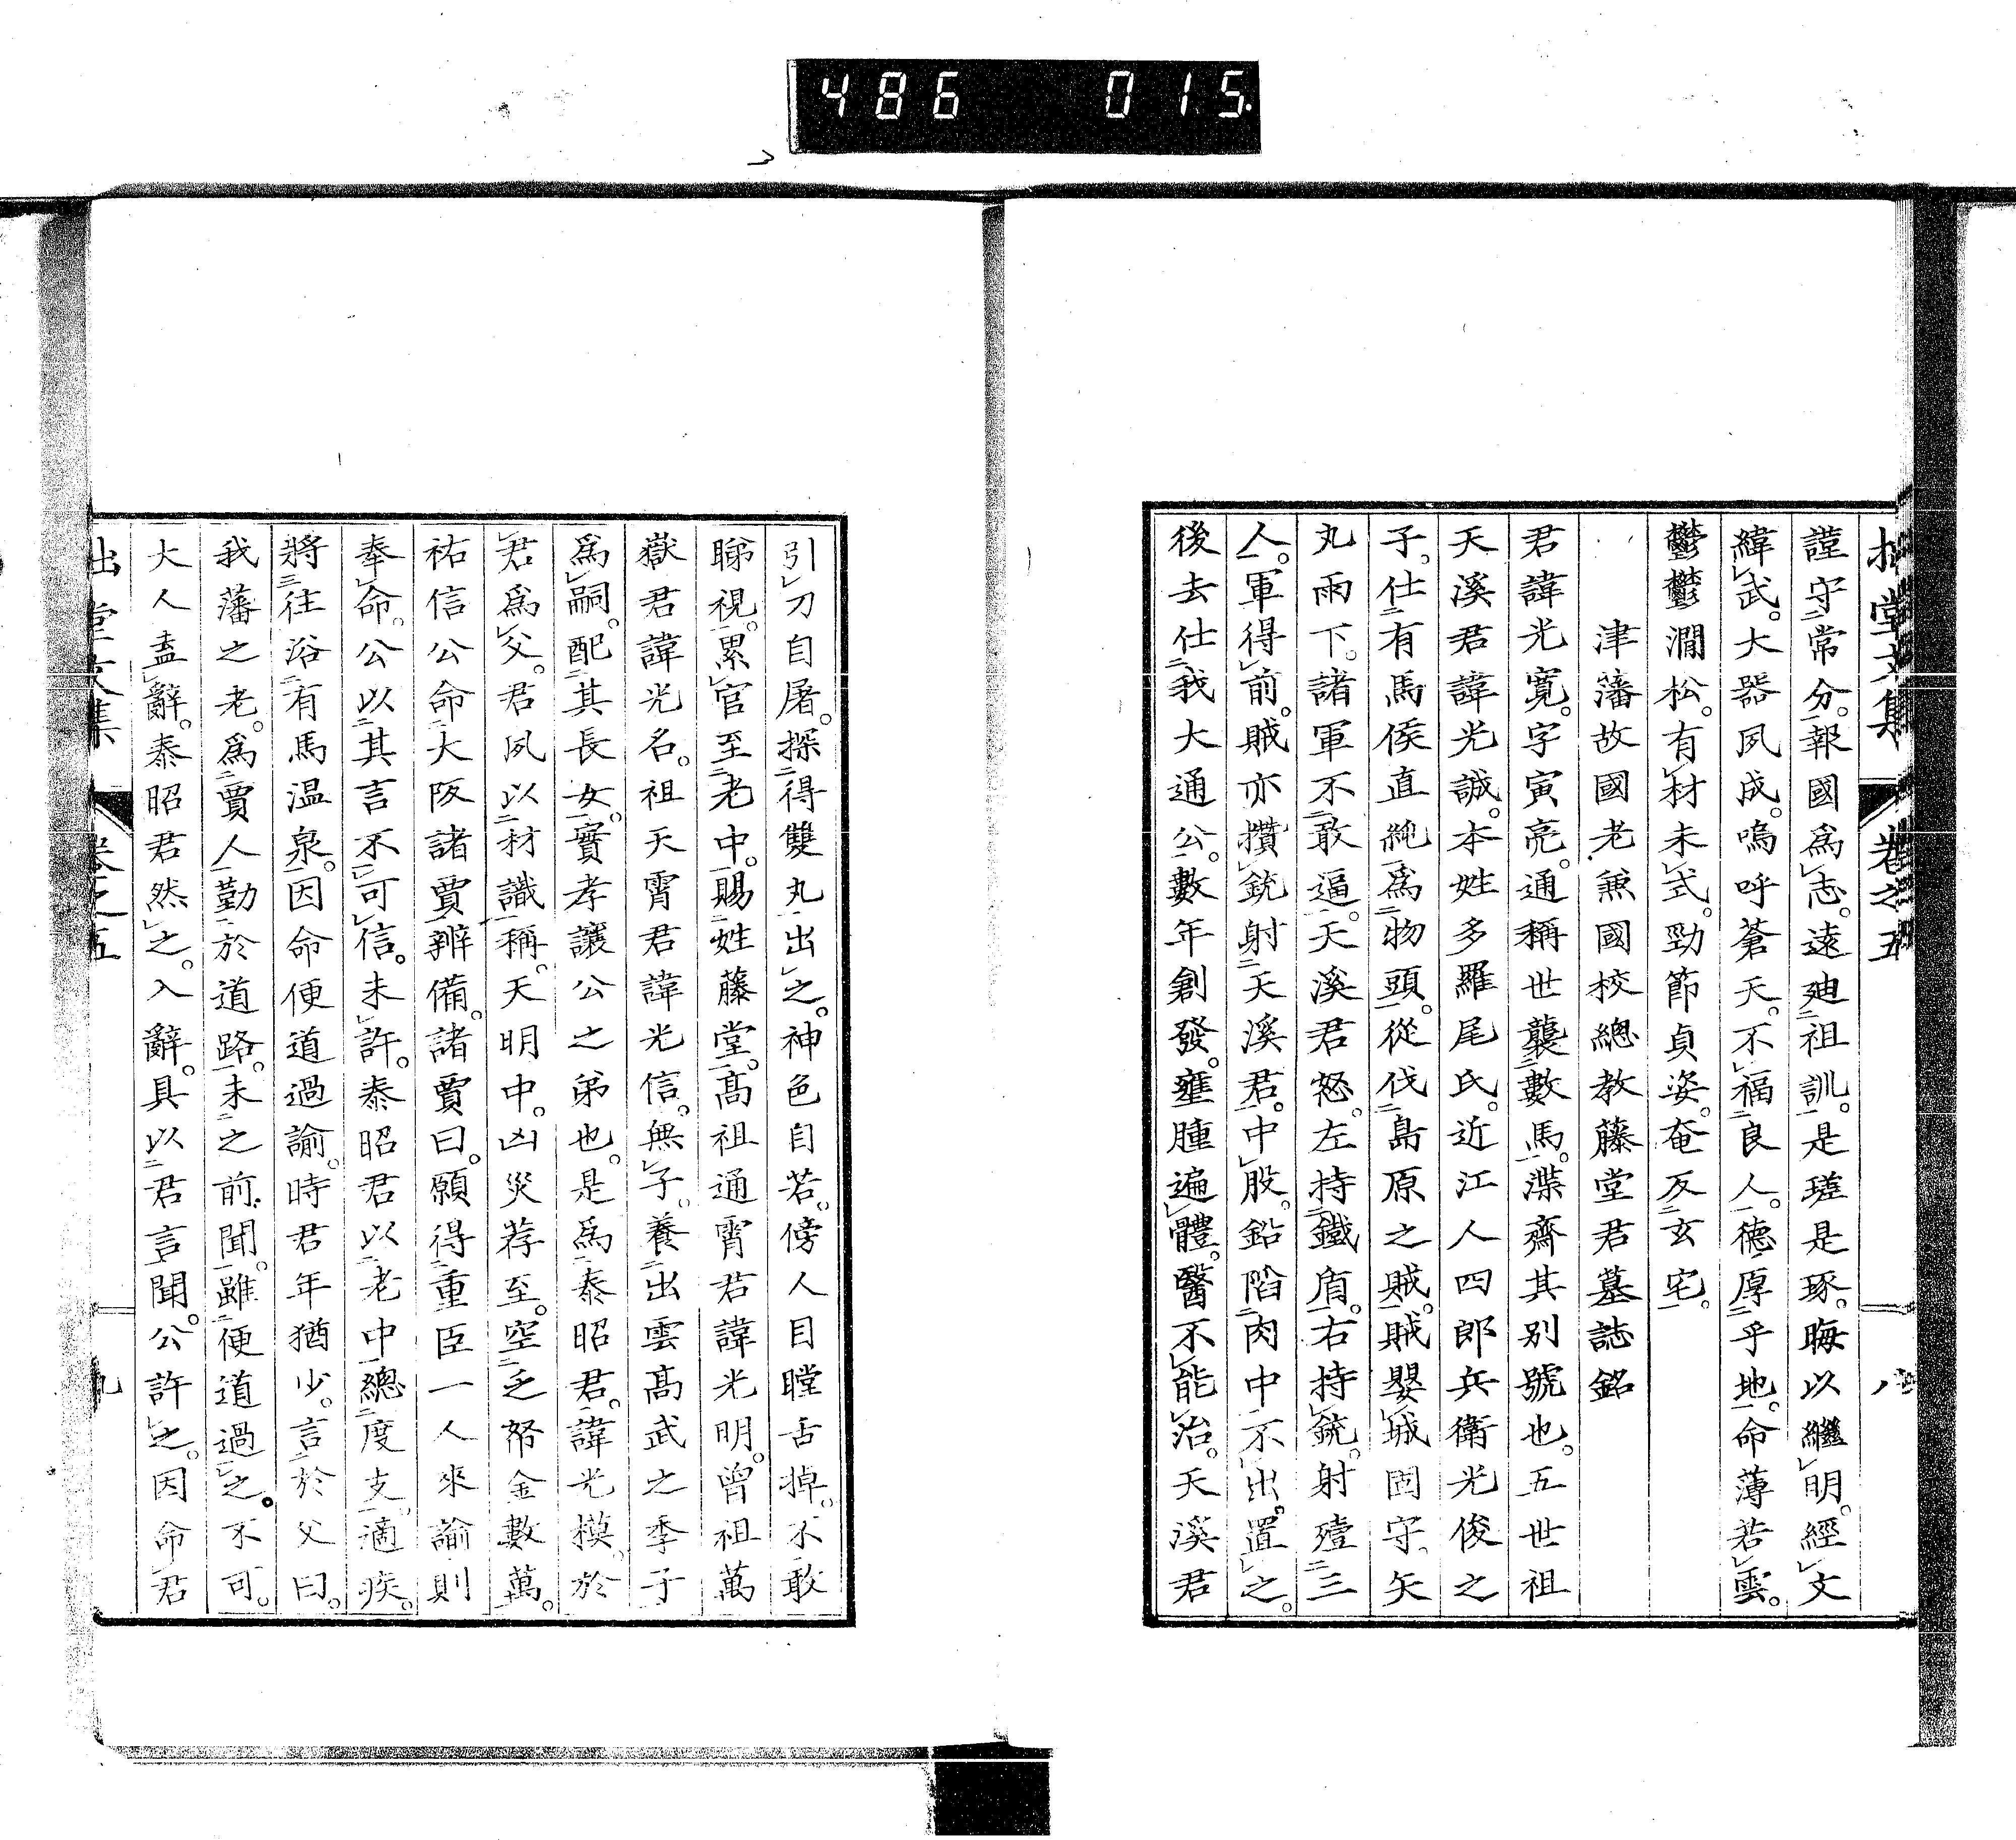 486 015
拙堂文集 卷之五 八
謹守常分。報國爲志。遠廸祖訓。是瑳是琢。晦以繼明。經文
緯武。大器夙成。嗚呼蒼天。不福良人。德厚乎地。命薄若雲。
鬱鬱澗松。有材未式。勁節貞姿。奄反玄宅。
津藩故國老兼國校總教藤堂君墓誌銘
君諱光寬。字寅亮。通稱世襲數馬。渫齋其別號也。五世祖
天溪君諱光誠。本姓多羅尾氏。近江人四郎兵衛光俊之
子。仕有馬侯直純爲物頭。從伐島原之賊。賊嬰城固守。矢
丸雨下。諸軍不敢逼。天溪君怒。左持鐵盾。右持銃。射殪三
人。軍得前。賊亦攢銃射天溪君。中股。鉛陷肉中不出。置之。
後去仕我大通公。數年創發。壅腫遍體。醫不能治。天溪君
引刀自屠。探得雙丸出之。神色自若。傍人目瞠舌掉。不敢
睇視。累官至老中。賜姓藤堂。高祖通霄君諱光明。曾祖萬
嶽君諱光名。祖天霄君諱光信。無子。養出雲高武之季子
爲嗣。配其長女。實孝讓公之弟也。是爲泰昭君。諱光模。於
君爲父。君夙以材識稱。天明中。凶災荐至。空乏帑金數萬。
祐信公命大阪諸賈辨備。諸賈曰。願得重臣一人來諭則
奉命。公以其言不可信。未許。泰昭君以老中總度支。適疾。
將往浴有馬温泉。因命便道過諭。時君年猶少。言於父曰。
我藩之老。爲賈人勤於道路。未之前聞。雖便道過之。不可。
大人盍辭。泰昭君然之。入辭。具以君言聞。公許之。因命君
拙堂文集 卷之五 九